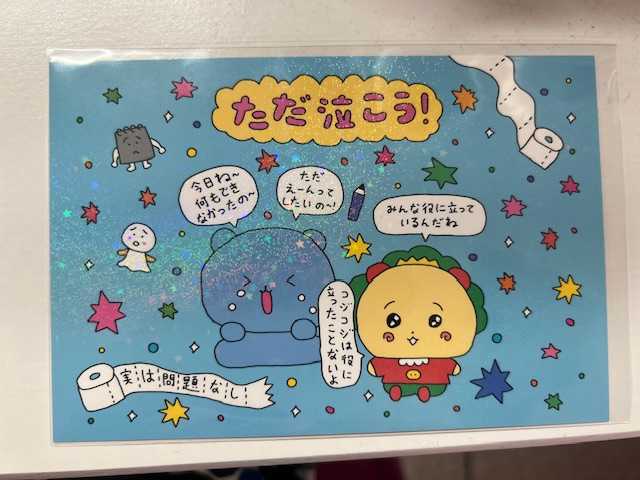 ただ泣こう!
今日ね〜
何もでき
なかったの〜
ただ
えーんって
したいの〜!
みんな役に立って
いるんだね
コジコジは役に
立ったことないよ
実は問題なし